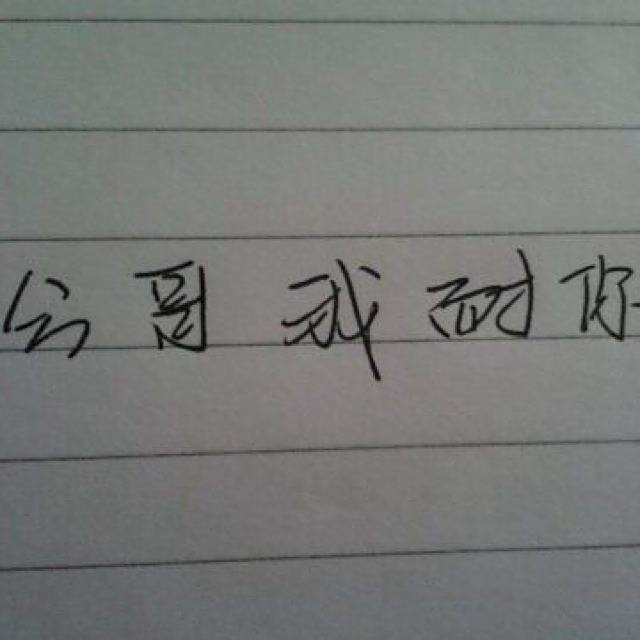 公哥我耐你